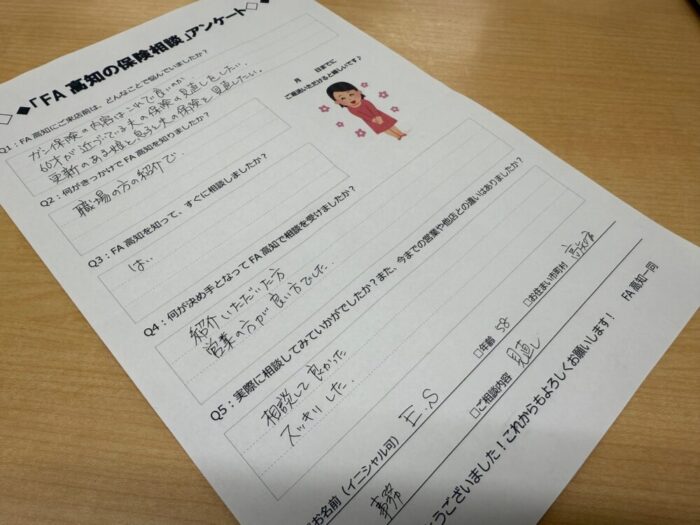 ◇◆「FA 高知の保険相談」アンケート◇
月 日までに
ご返送いただけると嬉しいです♪
Q1：FA 高知にご来店前は、どんなことで悩んでいましたか？
ガン保険の内容はこれで良いのか
60才が近づいている夫の保険の見直しをしたい。
更新のある娘と息子と夫の保険を見直したい。
Q2：何がきっかけで FA 高知を知りましたか？
職場の方の紹介で
Q3：FA 高知を知って、すぐに相談しましたか？
はい
Q4：何が決め手となって FA 高知で相談を受けましたか？
紹介いただいた方
営業の方が良い方でした。
Q5：実際に相談してみていかがでしたか？また、今までの営業や他店との違いはありましたか？
相談して良かった
スッキリした。
お名前（イニシャル可） E.S
□年齢 58
□お住まい市町村 高知市
□ご相談内容 見直し
うございました！これからもよろしくお願いします！
FA 高知一同